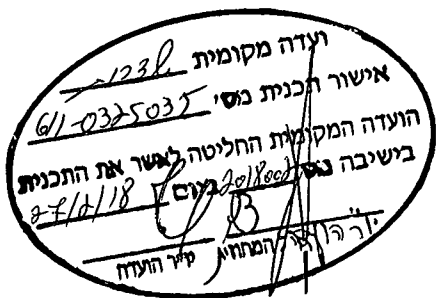 ועדה מקומית
אישור תכנית מס' 611-0325035
הועדה המקומית החליטה לאשר את התכנית
בישיבה מס' 2018002 ביום 27/2/18
יו"ר הועדה